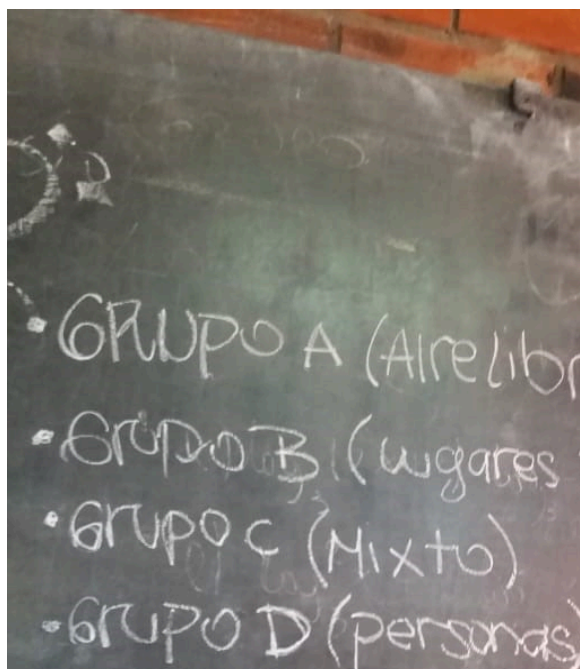 • GRUPO A (Aire libr
• Grupo B (lugares
• Grupo C (Mixto)
• Grupo D (personas)